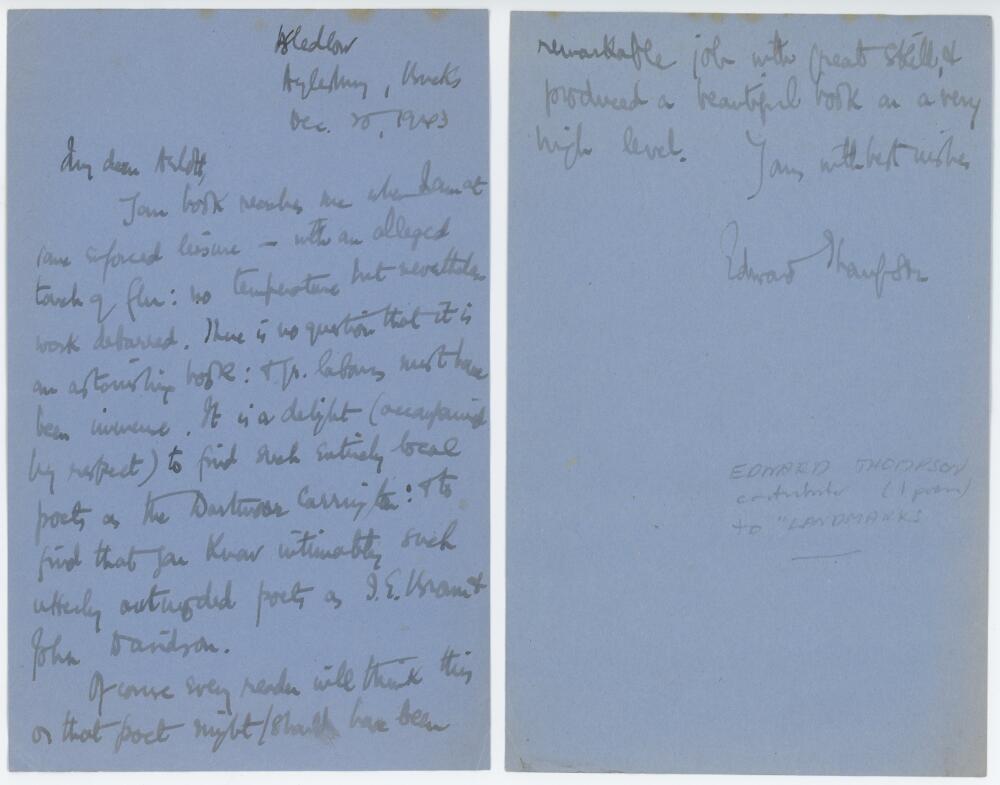 Bledlow
Aylesbury, Bucks
Dec. 20, 1943
My dear Arlott,
Your book reaches me when I am at
some enforced leisure — with an alleged
touch of flu: no temperature but nevertheless
work debarred. There is no question that it is
an astonishing book: & yr. labours must have
been immense. It is a delight (accompanied
by respect) to find such entirely local
poets as the Dartmoor Carrington: & to
find that you know intimately such
utterly outmoded poets as T.E. Brown &
John Davidson.
Of course every reader will think this
or that poet might/should have been
remarkable job with great skill, &
produced a beautiful book on a very
high level. Yours with best wishes
Edward Thompson
EDWARD THOMPSON
contributor (1 poem)
to "LANDMARKS